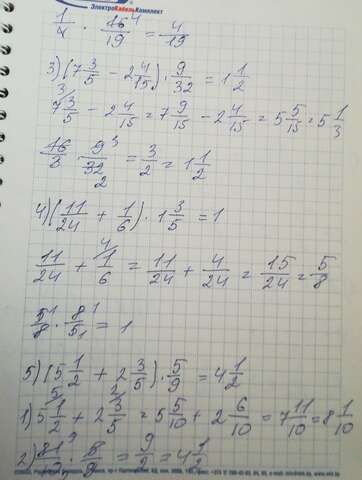 ЭлектроКабельКомплект
1/4 · 16⁴/19 = 4/19
3) (7 3/5 - 2 4/15) · 9/32 = 1 1/2
7 ³3/5 - 2 4/15 = 7 9/15 - 2 4/15 = 5 5/15 = 5 1/3
16/3 · 9³/32₂ = 3/2 = 1 1/2
4) (11/24 + 1/6) · 1 3/5 = 1
11/24 + ⁴1/6 = 11/24 + 4/24 = 15/24 = 5/8
5¹/8 · 8¹/5₁ = 1
5) (5 1/2 + 2 3/5) · 5/9 = 4 1/2
1) 5 ⁵1/2 + 2 ²3/5 = 5 5/10 + 2 6/10 = 7 11/10 = 8 1/10
2) = 9/2 = 4 1/2